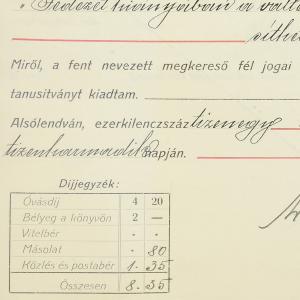 "Fedezet hiányában a
Miről, a fent nevezett megkereső fél jogai
tanusitványt kiadtam.
Alsólendván, ezerkilenczszáz tizenegy
tizenharmadik napján.
Díjjegyzék:
Óvásdíj 4 20
Bélyeg a könyvön 2 —
Vitelbér . .
Másolat . 80
Közlés és postabér 1. 35
Összesen 8. 35